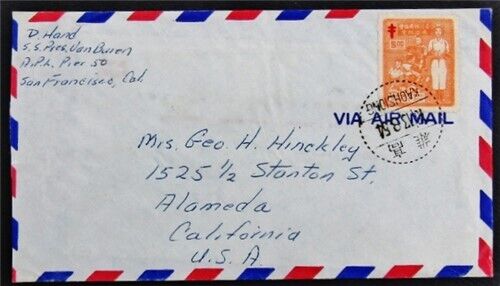 D. Hand
S.S. Pres. Van Buren
A.P.L. Pier 50
San Francisco, Cal.
8.00
VIA AIR MAIL
KAOHSIUNG
高雄
Mrs. Geo H. Hinckley
1525 1/2 Stanton St.
Alameda
California
U.S.A.